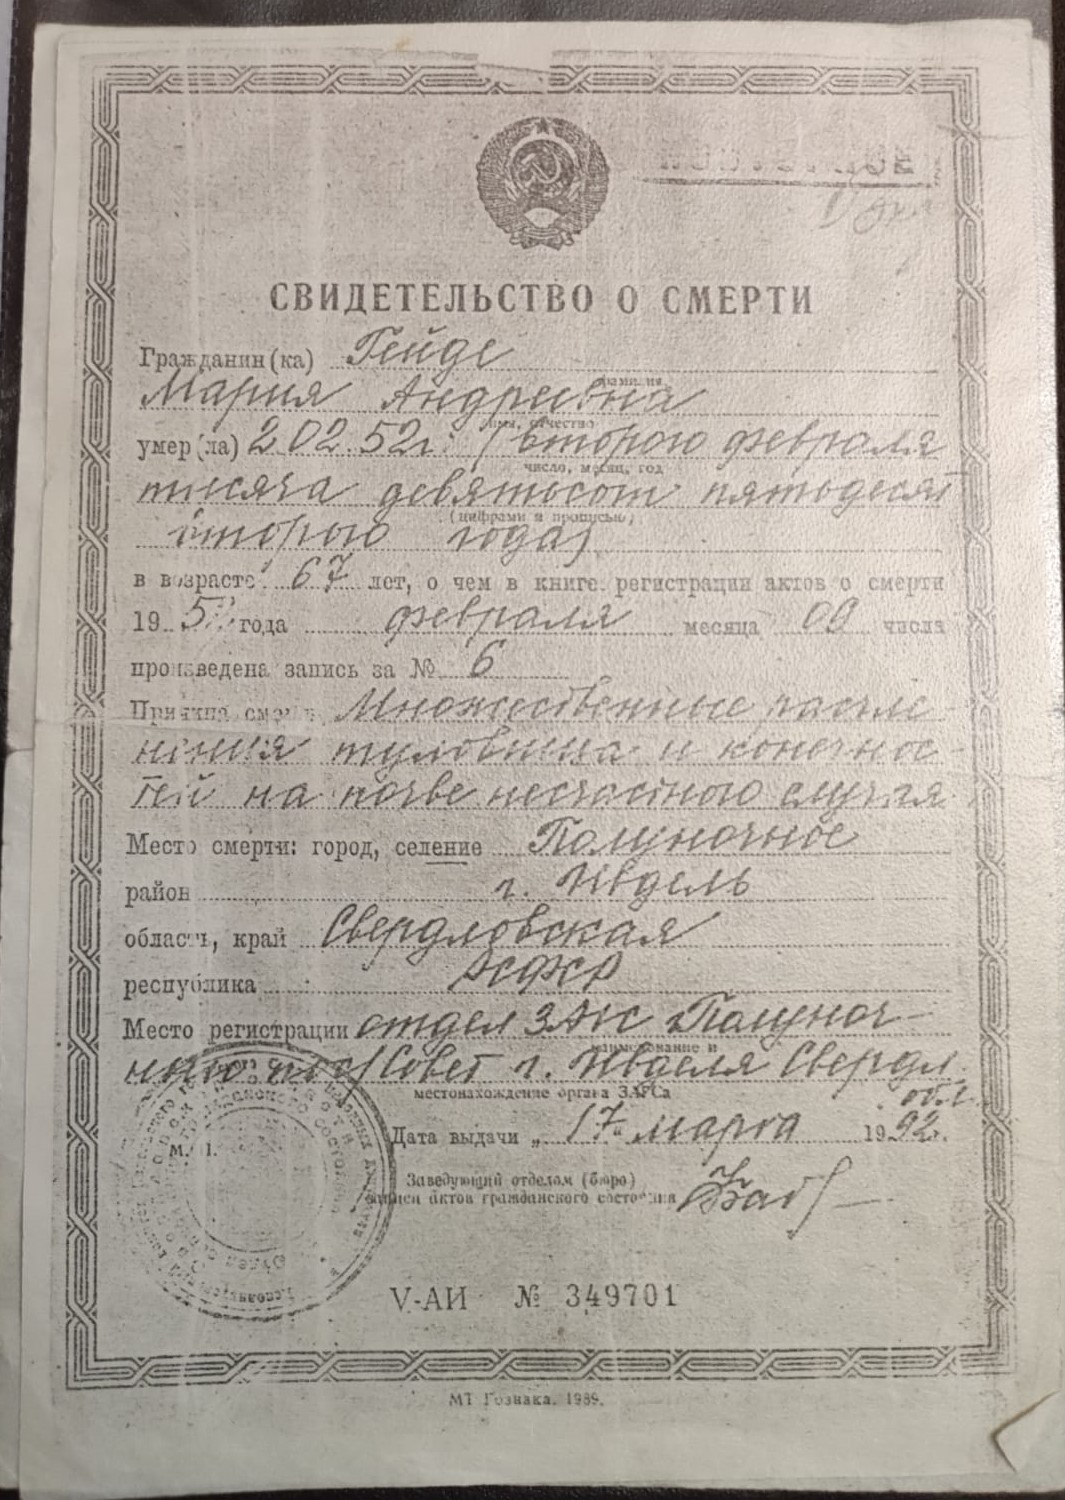 СВИДЕТЕЛЬСТВО О СМЕРТИ
Гражданин(ка) Гейде
фамилия
Мария Андреевна
имя, отчество
умер(ла) 2.02.52г. (второго февраля
число, месяц, год
тысяча девятьсот пятьдесят
(цифрами и прописью)
второго года)
в возрасте 67 лет, о чем в книге регистрации актов о смерти
1952 года февраля месяца 09 числа
произведена запись за № 6
Причина смерти Множественные расчле
нения туловища и конечнос-
тей на почве несчастного случая
Место смерти: город, селение Полуночное
район г. Ивдель
область, край Свердловская
республика РСФСР
Место регистрации отдел ЗАГС Полуноч-
наименование и
ного пос/Совет г. Ивделя Свердл.
местонахождение органа ЗАГСа
обл.
Дата выдачи „17“ марта 1992г.
М. П.
Заведующий отделом (бюро)
записи актов гражданского состояния
V-АИ № 349701
МТ Гознака. 1989.